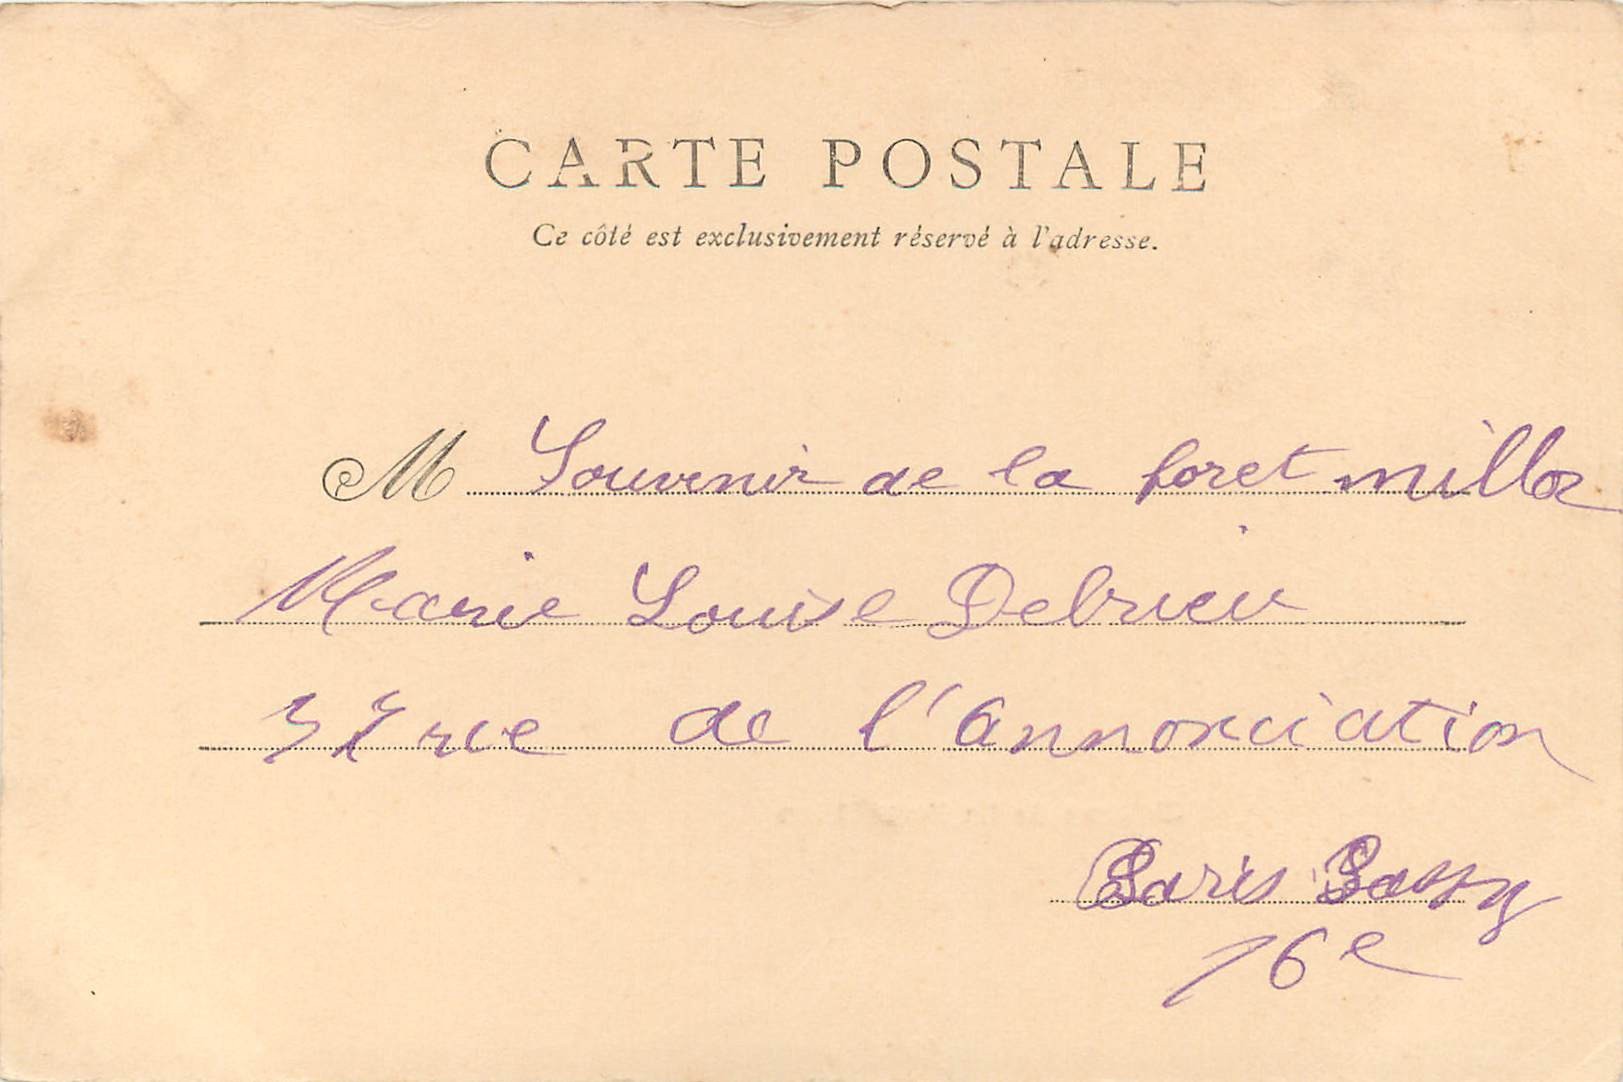 CARTE POSTALE
Ce côté est exclusivement réservé à l'adresse.
M Souvenir de la foret
Marie Louise Debrieu
37 rue de l'annonciation
Paris Passy
16e